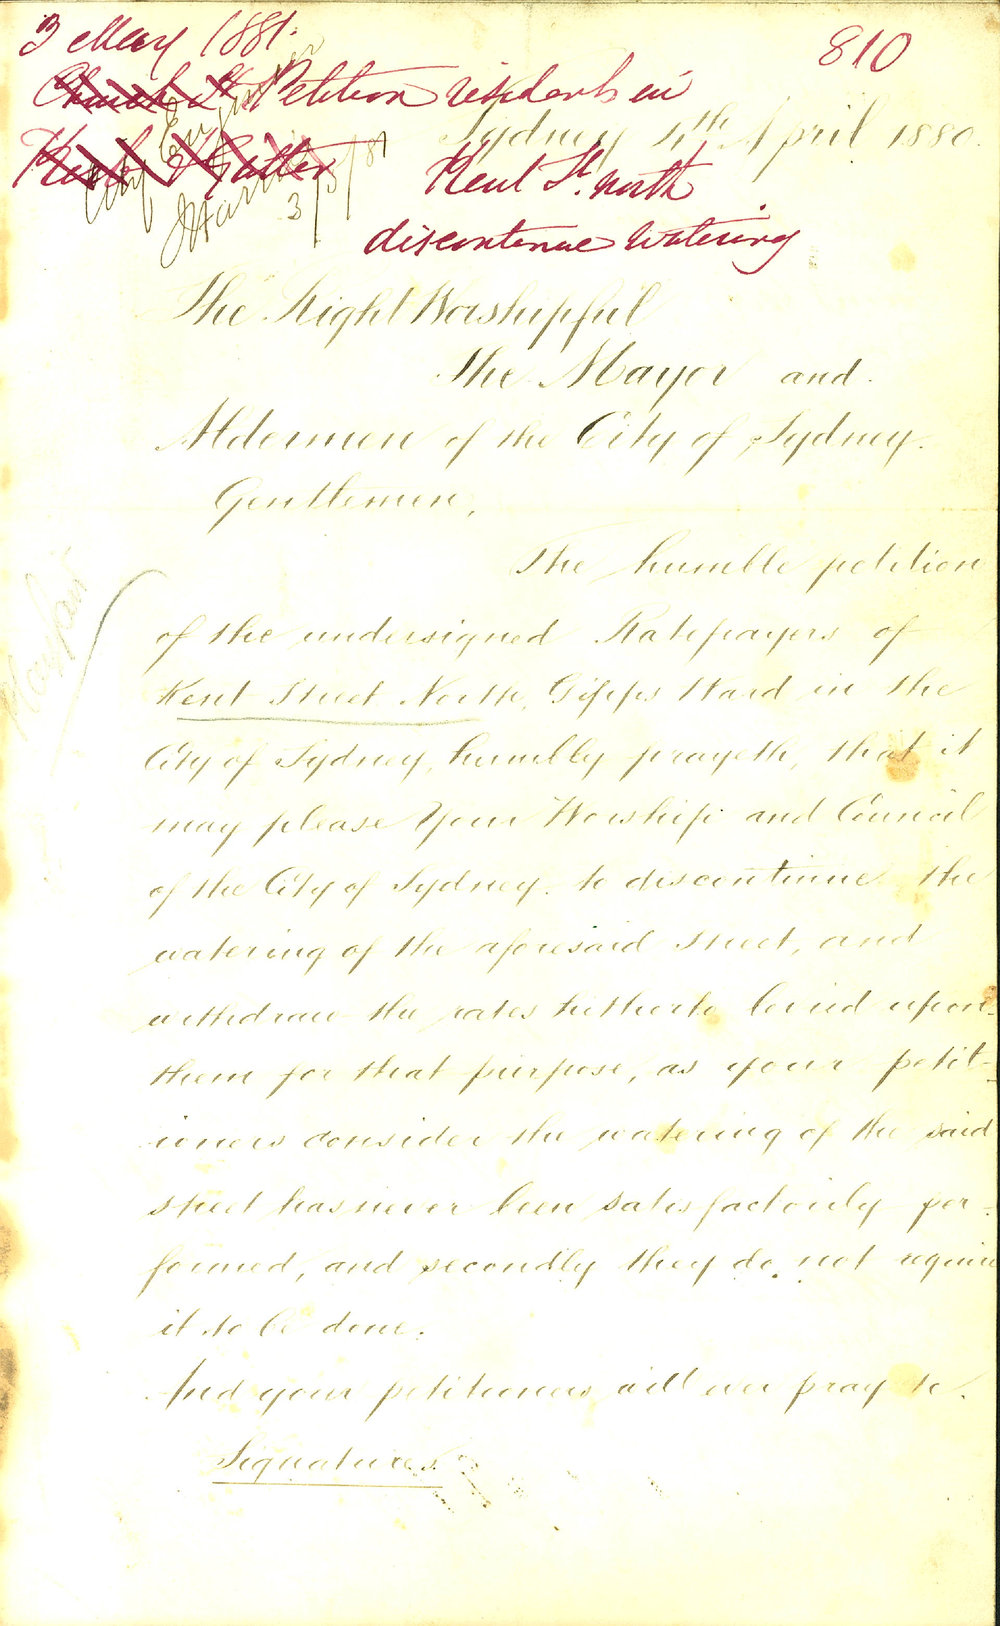 3 May 1881.
810
Church St Petition residents in
Kerb & Gutter Kent St. north
discontinue watering
City Engineer
3/5/81
Sydney 4th April 1880.
The Right Worshipful
The Mayor and
Aldermen of the City of Sydney.
Gentlemen,
The humble petition
of the undersigned Ratepayers of
Kent Street North, Gipps Ward in the
City of Sydney, humbly prayeth, that it
may please Your Worship and Council
of the City of Sydney. to discontinue the
watering of the aforesaid street, and
withdraw the rates hitherto levied upon
them for that purpose, as your petit-
ioners consider the watering of the said
street has never been satisfactorily per-
formed, and secondly they do not require
it to be done.
And your petitioners will ever pray &c.
Signatures.